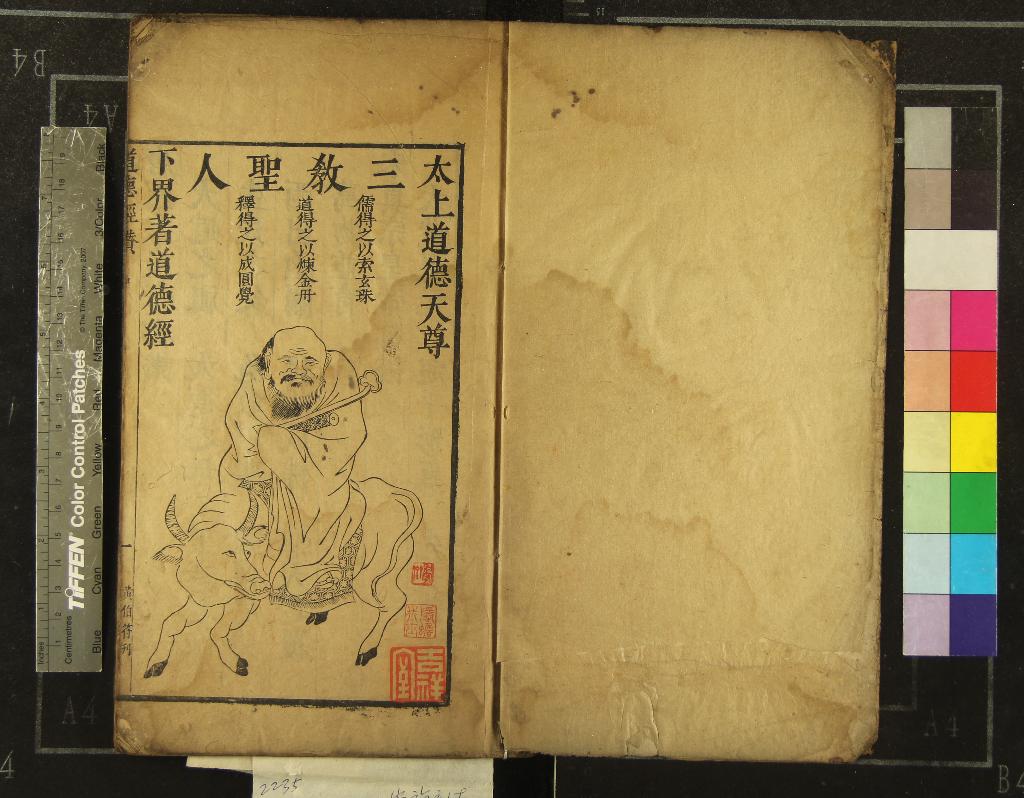 太上道德天尊
三教聖人
儒得之以索玄珠
道得之以煉金丹
釋得之以成圓覺
下界著道德經
道德經贊
一
黃伯符刊
吉祥室
2235
TIFFEN Color Control Patches
© The Tiffen Company, 2007
Inches
Centimetres
Blue Cyan Green Yellow Red Magenta White 3/Color Black
B4
A4
A4
A4
B4